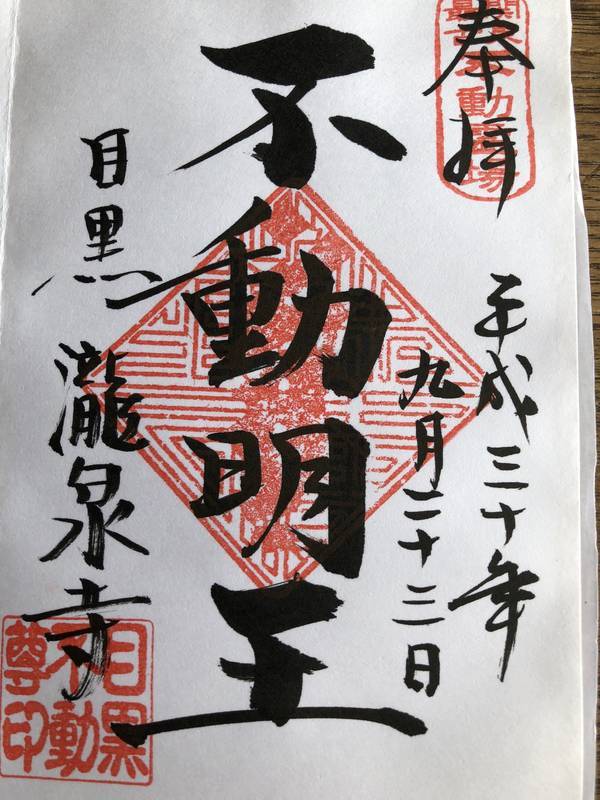 奉拝
不動霊場
平成三十年
九月二十三日
不動明王
目黒 瀧泉寺
目黒
不動
尊印